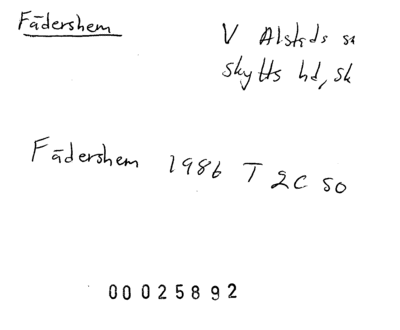 Fädershem
V Alstads sn
Skytts hd, Sk
Fädershem 1986 T 2C SO
00025892